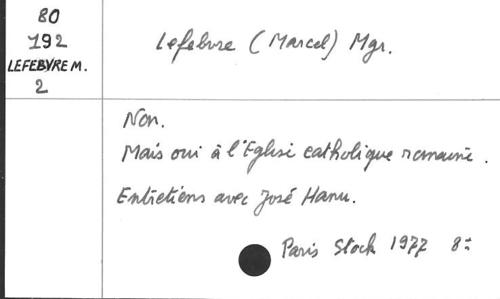 80
192
LEFEBVRE M.
2
Lefebvre (Marcel) Mgr.
Non.
Mais oui à l'Eglise catholique romaine.
Entretiens avec José Hanu.
Paris Stock 1977 8°